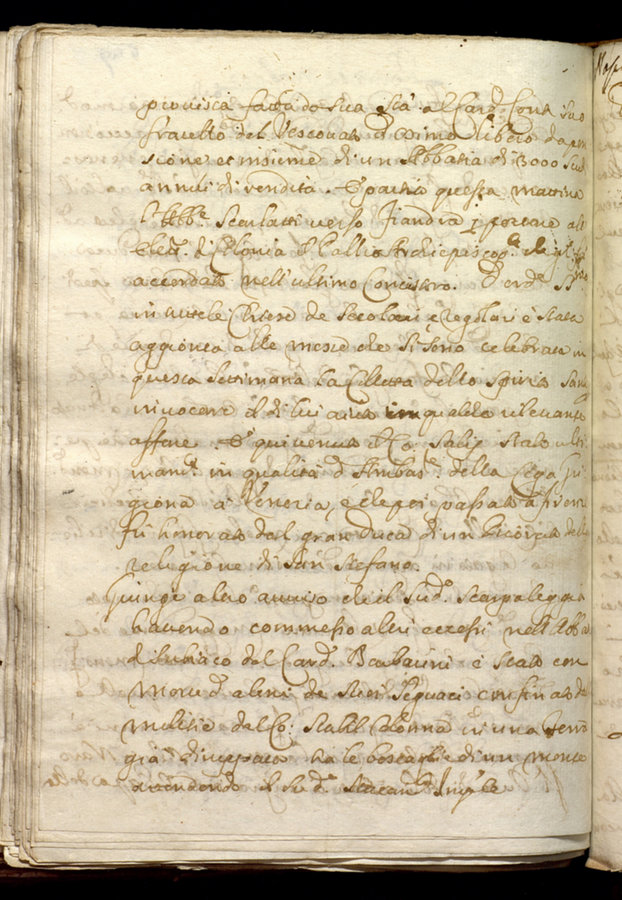 provista fatta da Sua Stà al Card. Conti suo
fratello del Vescovato d' Osimo libero da pen
sione et insieme di un Abbatia di 3000 scudi
annui di rendita. È partito questa mattina
l'Abb.e Scarlatti verso Fiandra p portare all
Elett. di Colonia il Pallio Archiepiscop.le
accordato nell'ultimo Concistoro. D'ord.e
in tutte le Chiese de Secolari e Regolari è stata
aggionta alle messe che si sono celebrate in
questa settimana la Colletta dello Spirito Santo
invocare il di lui aiuto in qualche rilevante
affare. È qui venuto il Co. Salis stato ulti
mam.e in qualità d' Ambas.e della Lega Gri
giona a Venezia, e che poi passato a Firenze
fù honorato dal gran Duca di un della
religione di San Stefano.
Giunge altro aviso che il sud.o Scarpaleggia
havendo commesso altri eccessi nell'Abba
di Subiaco del Card. Barberini è stato con
morte d' alcuni de suoi seguaci confinato da
militie del Co: Stabil Colonna in una Terra
già tra le boscarlie di un monte
attendendo il sud.o